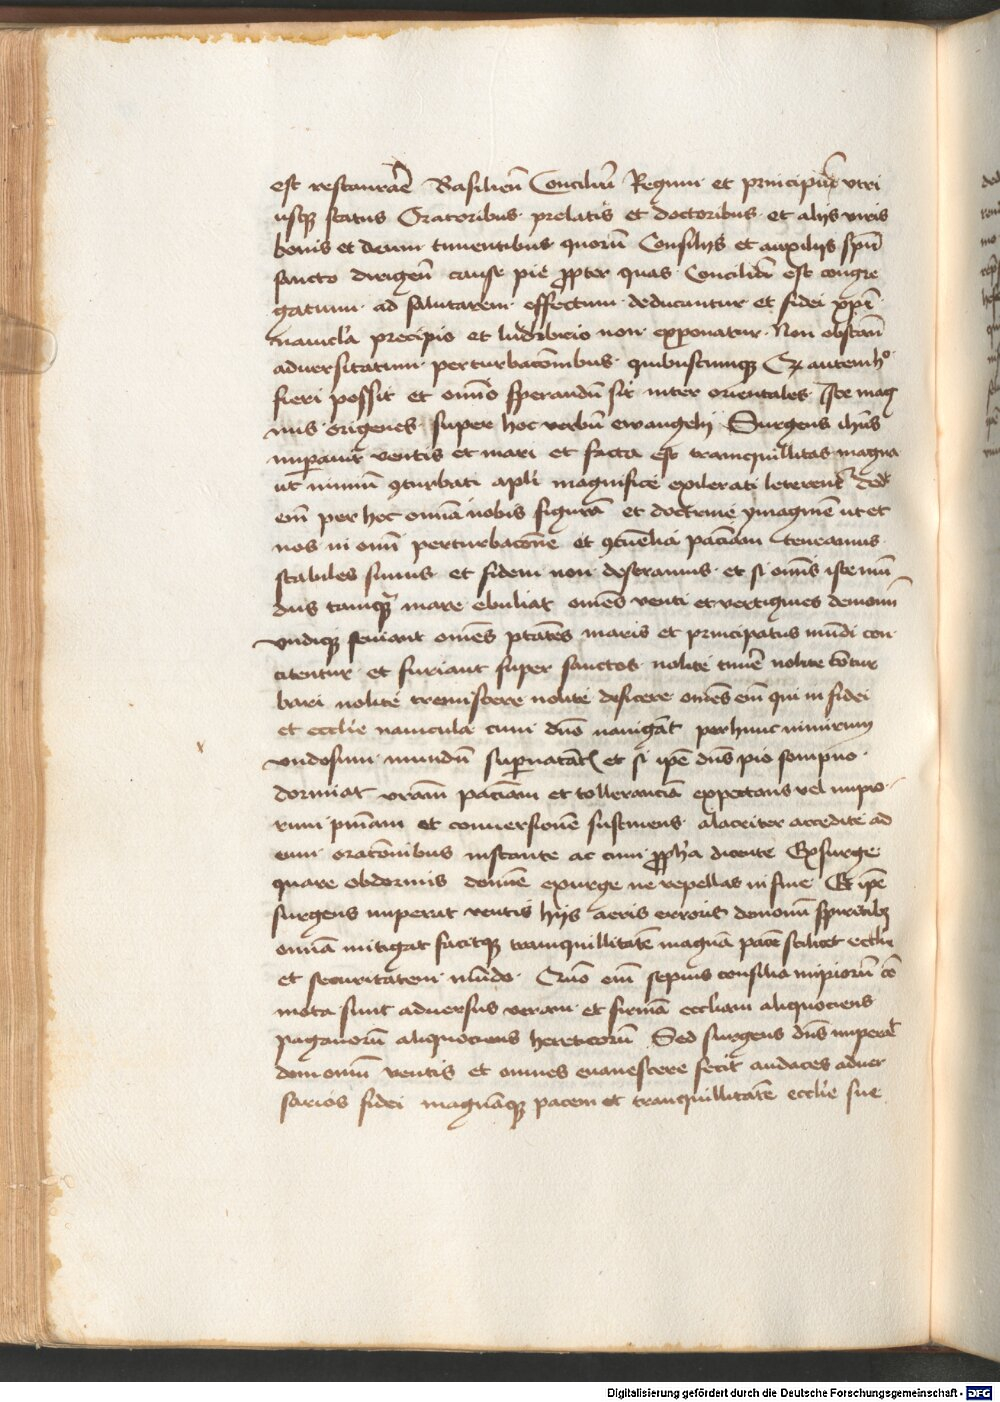 est restaurare Basilien Conciliu Regum et principum utri
usque status Oratoribus prelatis et doctoribus et alijs viris
bonis et deum timentibus quorum Consilijs et auxilijs spiritu
sancto dirigen cause pie propter quas Concilium est congre
gatum ad salutarem effectum deducantur et fidei xpi
navicla precipio et ludibrio non exponatur Non obstan
adversitatum perturbacionibus quibuscumque autem hoc
fieri possit et omnino sperandum sit inter orientales Iste mag
nus origenes super hoc verbum ewangelij Surgens ihesus
imperavit ventis et mari et facta est tranquillitas magna
ut nimium conturbati apli magnifice exilerati
enim per hoc omnia nobis figuram et doctrine ymaginem ut et
nos in omni perturbacione et pacienciam teneamus
stabiles simus et fidem non deseramus et si omnis iste mun
dus tamquam mare ebuliat omnes venti et vertigines demonum
undique seviant omnes potestates maris et principatus mundi con
citentur et furiant super sanctos nolite timere nolite contur
bari nolite tremiscere nolite deficere omnes enim qui in fidei
et ecclie navicula cum domino navigant per hunc nimirum
undosum mundum supernatant et si ipse dns pio sompno
dormiat vestram pacienciam et tollerancia expectans vel impio
rum penitenciam et conversionem sustinens alacriter accedite ad
eum oracionibus instante ac cum propheta dicente Exsurge
quare obdormis domine exurge ne repellas in fine Et ipse
surgens imperat ventis hijs aeris erroris demonum spiritibus
omnia mitigat facitque tranquillitatem magnam pacem scilicet ecclie
et securitatem mundo Quo enim sepius consilia impiorum com
mota sunt adversus veram et firmam eccliam aliquociens
paganorum aliquociens hereticorum Sed surgens dns imperat
demonum ventis et omnes evanescere fecit audaces adver
sarios fidei magnamque pacem et tranquillitatem ecclie sue
Digitalisierung gefördert durch die Deutsche Forschungsgemeinschaft - DFG